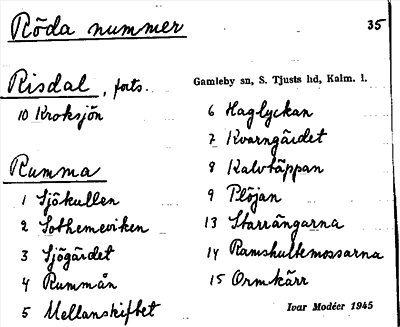 Röda nummer 35
Risdal, forts.
10 Kroksjön
Rumma
1 Sjökullen
2 Sothemeviken
3 Sjögärdet
4 Rummån
5 Mellanskiftet
Gamleby sn, S. Tjusts hd, Kalm. l.
6 Haglyckan
7 Kvarngärdet
8 Kalvtäppan
9 Plöjan
13 Starrängarna
14 Ramshultemossarna
15 Ormkärr
Ivar Modéer 1945